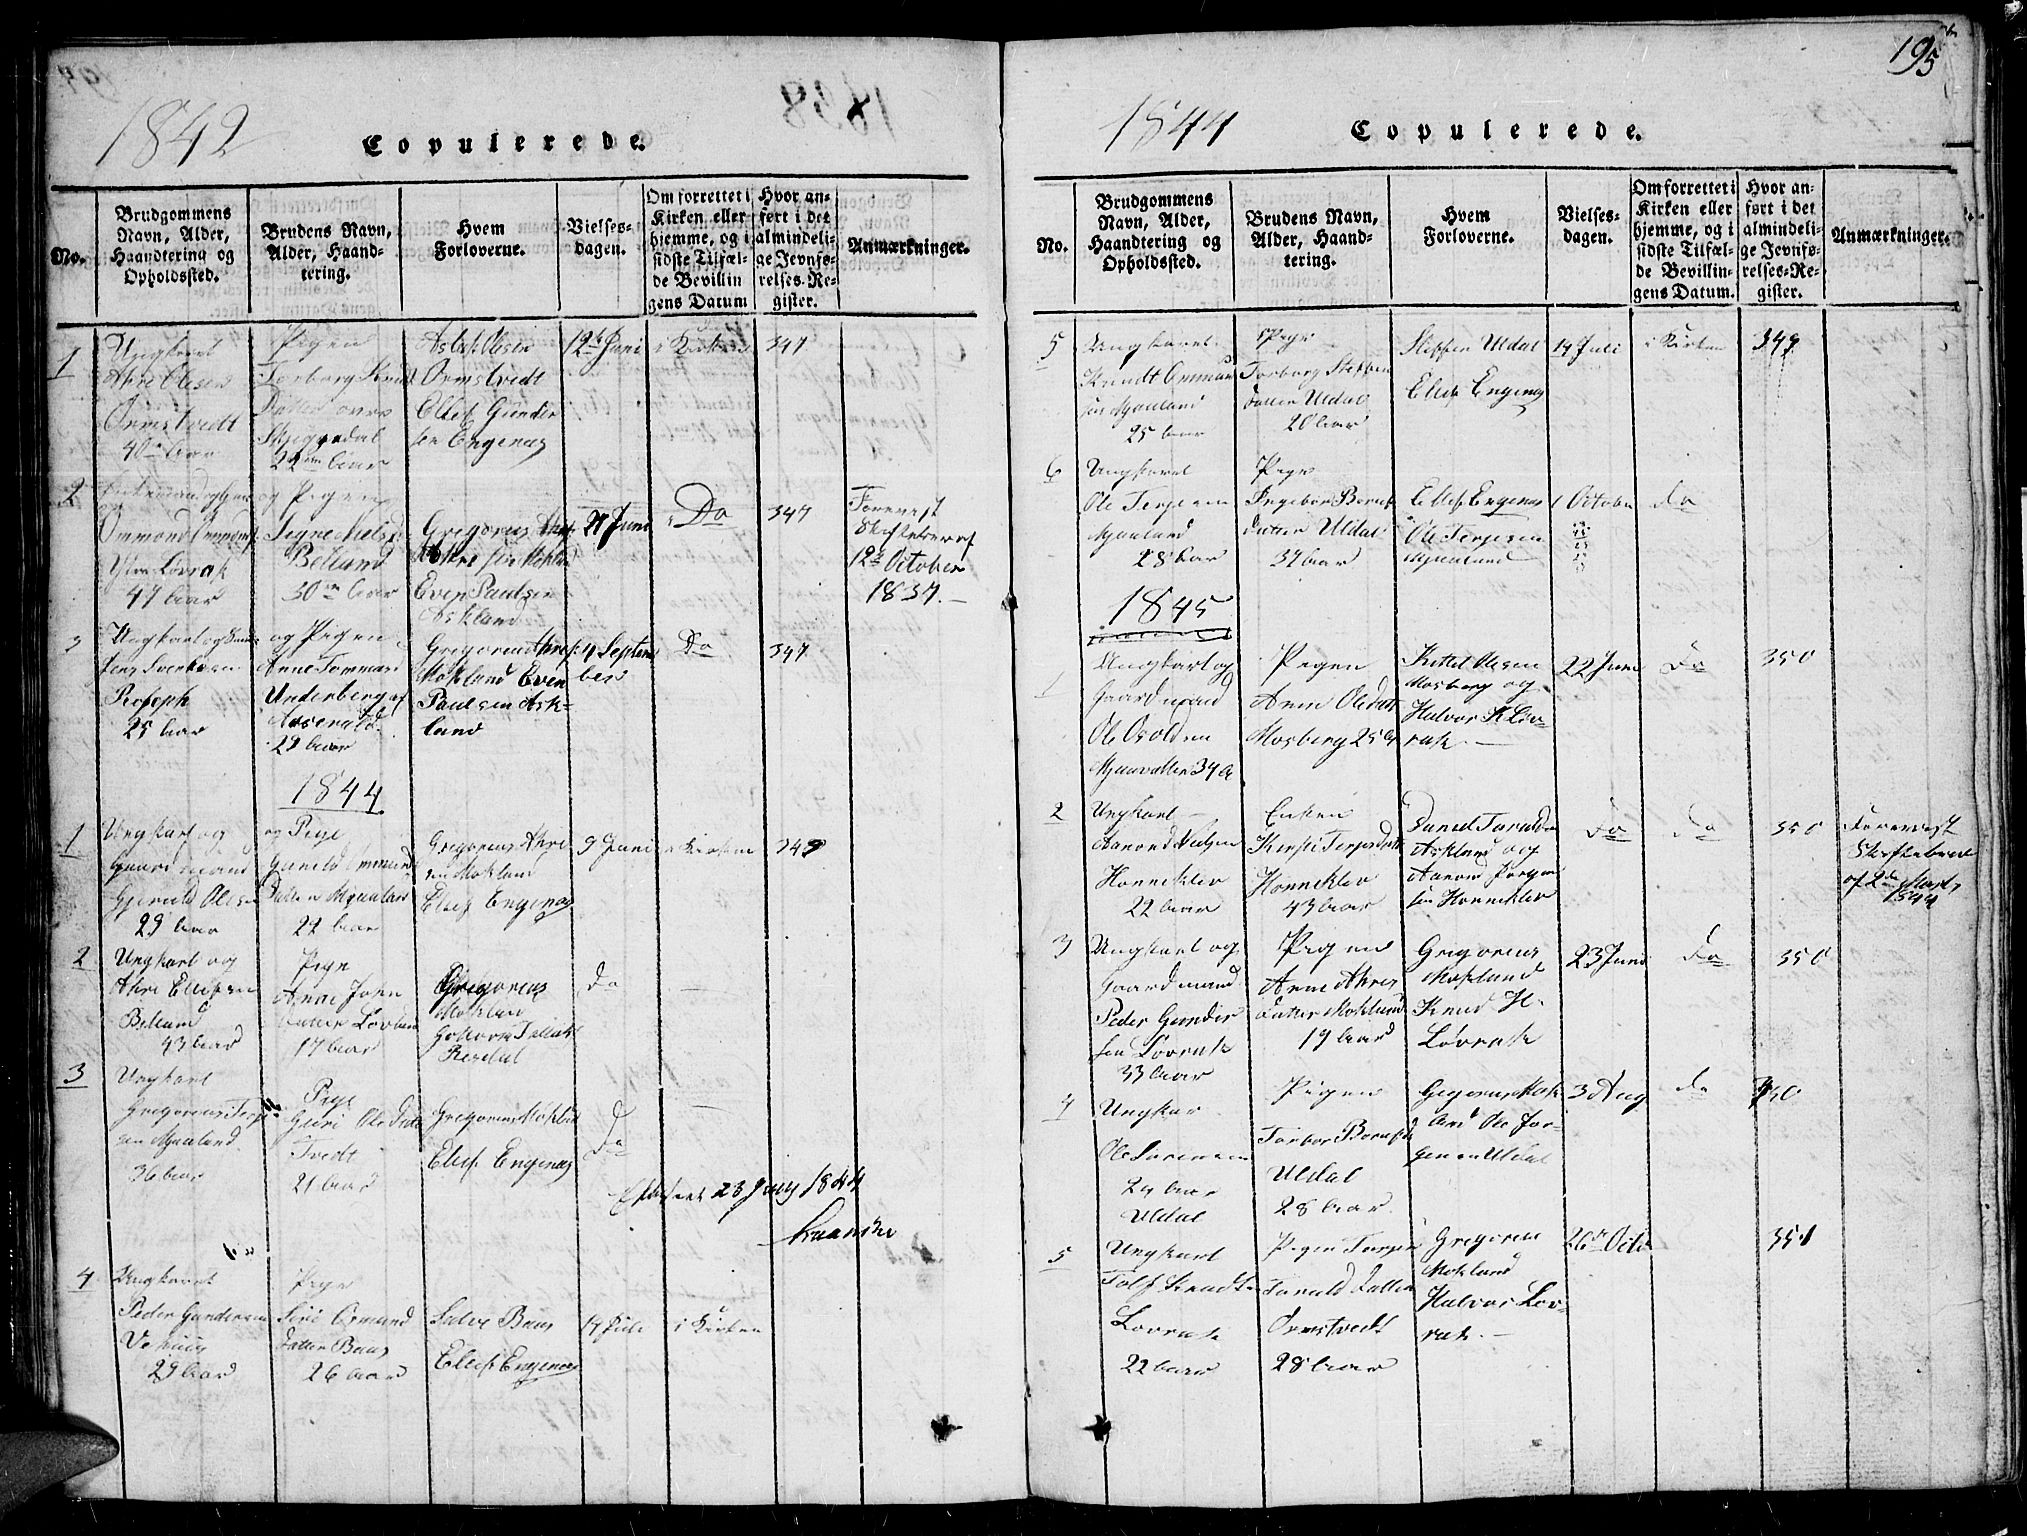 1842
Copulerede.
No.
Brudgommens Navn, Alder, Haandtering og Opholdssted.
Brudens Navn, Alder, Haandtering.
Hvem Forloverne.
Vielsesdagen.
Om forrettet i Kirken eller hjemme, og i sidste Tilfælde Bevillingens Datum
Hvor anført i det almindelige Jevnførelses-Register.
Anmærkninger.
1
Ungkarl
Akre Olesen
Ormstvedt
40 Aar
Pigen
Torborg Knuds
Datter
Skjeggedal
22 Aar
Aslak Olesen
Ormstvedt
Ellef Gunder
sen Engenæs
12te Juni
i Kirken
347
2
og Pigen
Ommond Ommunds
Ytre Lövrak
47 Aar
Signe Niels
Belland
30 Aar
Gregorius Akre
sen Mokland
Even Paulsen
Askland
27 Juni
Do
347
Forevist
Skiftebrev af
12te October
1837.
3
Ungkarl og
Roseph
25 Aar
og Pigen
Anne Tommas
Underberg
22 Aar
Gregorius Akres
Mokland Even
Paulsen Ask-
land
4 Septem
ber
Do
347
1844
1
Ungkarl og
Gaardmand
Gjeruld Olesen
29 Aar
og Pige
Gunild Ommund
Datter Mjaaland
22 Aar
Gregorius Akre
sen Mokland
Ellef Engenæs
9 Juni
i Kirken
349
2
Ungkarl og
Akre Ellefsen
Belland
43 Aar
Pige
Anne Jørn
Datter Lovland
17 Aar
Gregorius
Mokland
Risdal
Do
3
Ungkarl
Gregorius Terje
sen Mjaaland
36 Aar
Pige
Guri Ole Datter
Tvedt
21 Aar
Gregorius Mokland
Ellef Engenæs
Do
23 Juny 1844
4
Ungkarl
Peder Gundersen
29 Aar
Pige
Siri Ormund
Datter Baas
26 Aar
Salve Baas
Ellef Engenæs
14 Juli
i Kirken
195
1844
Copulerede.
No.
Brudgommens Navn, Alder, Haandtering og Opholdssted.
Brudens Navn, Alder, Haandtering.
Hvem Forloverne.
Vielsesdagen.
Om forrettet i Kirken eller hjemme, og i sidste Tilfælde Bevillingens Datum.
Hvor anført i det almindelige Jevnførelses-Register.
Anmærkninger.
5
Ungkarl
Knudt Ommun
sen Mjaaland
25 Aar
Pige
Torborg Steffen
Datter Uldal
20 Aar
Steffen Uldal
Ellef Engenæs
14 Juli
i Kirken
349
6
Ungkarl
Ole Terjesen
Mjaaland
28 Aar
Pige
Ingebor Berulf
Datter Uldal
34 Aar
Ellef Engenæs
Ole Terjesen
Mjaaland
1 October
do
1845
1
Ungkarl og
Gaardmand
Ole Osoldsen
Mjaavatten 34 A
Pigen
Anne Ole Datter
Mosberg 25 A
Kittel Olesen
Mosberg og
Halvor K Löv-
rak.
22 Juni
Do
350
2
Ungkarl
Aanond Nielsen
Honneklev
22 Aar
Enken
Kirsti Terjesdatter
Honneklev
43 Aar
Daniel Taralds
Askland og
Aanon Jörgen
sen Honneklev
Do
do
350
Forevist
Skiftebrev
af 2den Marts
1844
3
Ungkarl og
Gaardmand
Peder Gunder
sen Lovrak
33 Aar
Pigen
Anne Akres
Datter Mokland
19 Aar
Gregorius
Mokland
Knud H.
Lövrak
23 Juni
Do
350
4
Ungkar
Ole Sörensen
24 Aar
Uldal
Pigen
Torbor Berulfsd
Uldal
28 Aar
Gregorius Mok
land Ole Jør-
gensen Uldal
3 Aug
do
350
5
Ungkarl
Tolf Knudts
Lovrak
22 Aar
Pigen
Tarald Datter
Ormstvedt
28 Aar
Gregorius
Mokland
Halvor Löv-
rak.
26de Octo
351